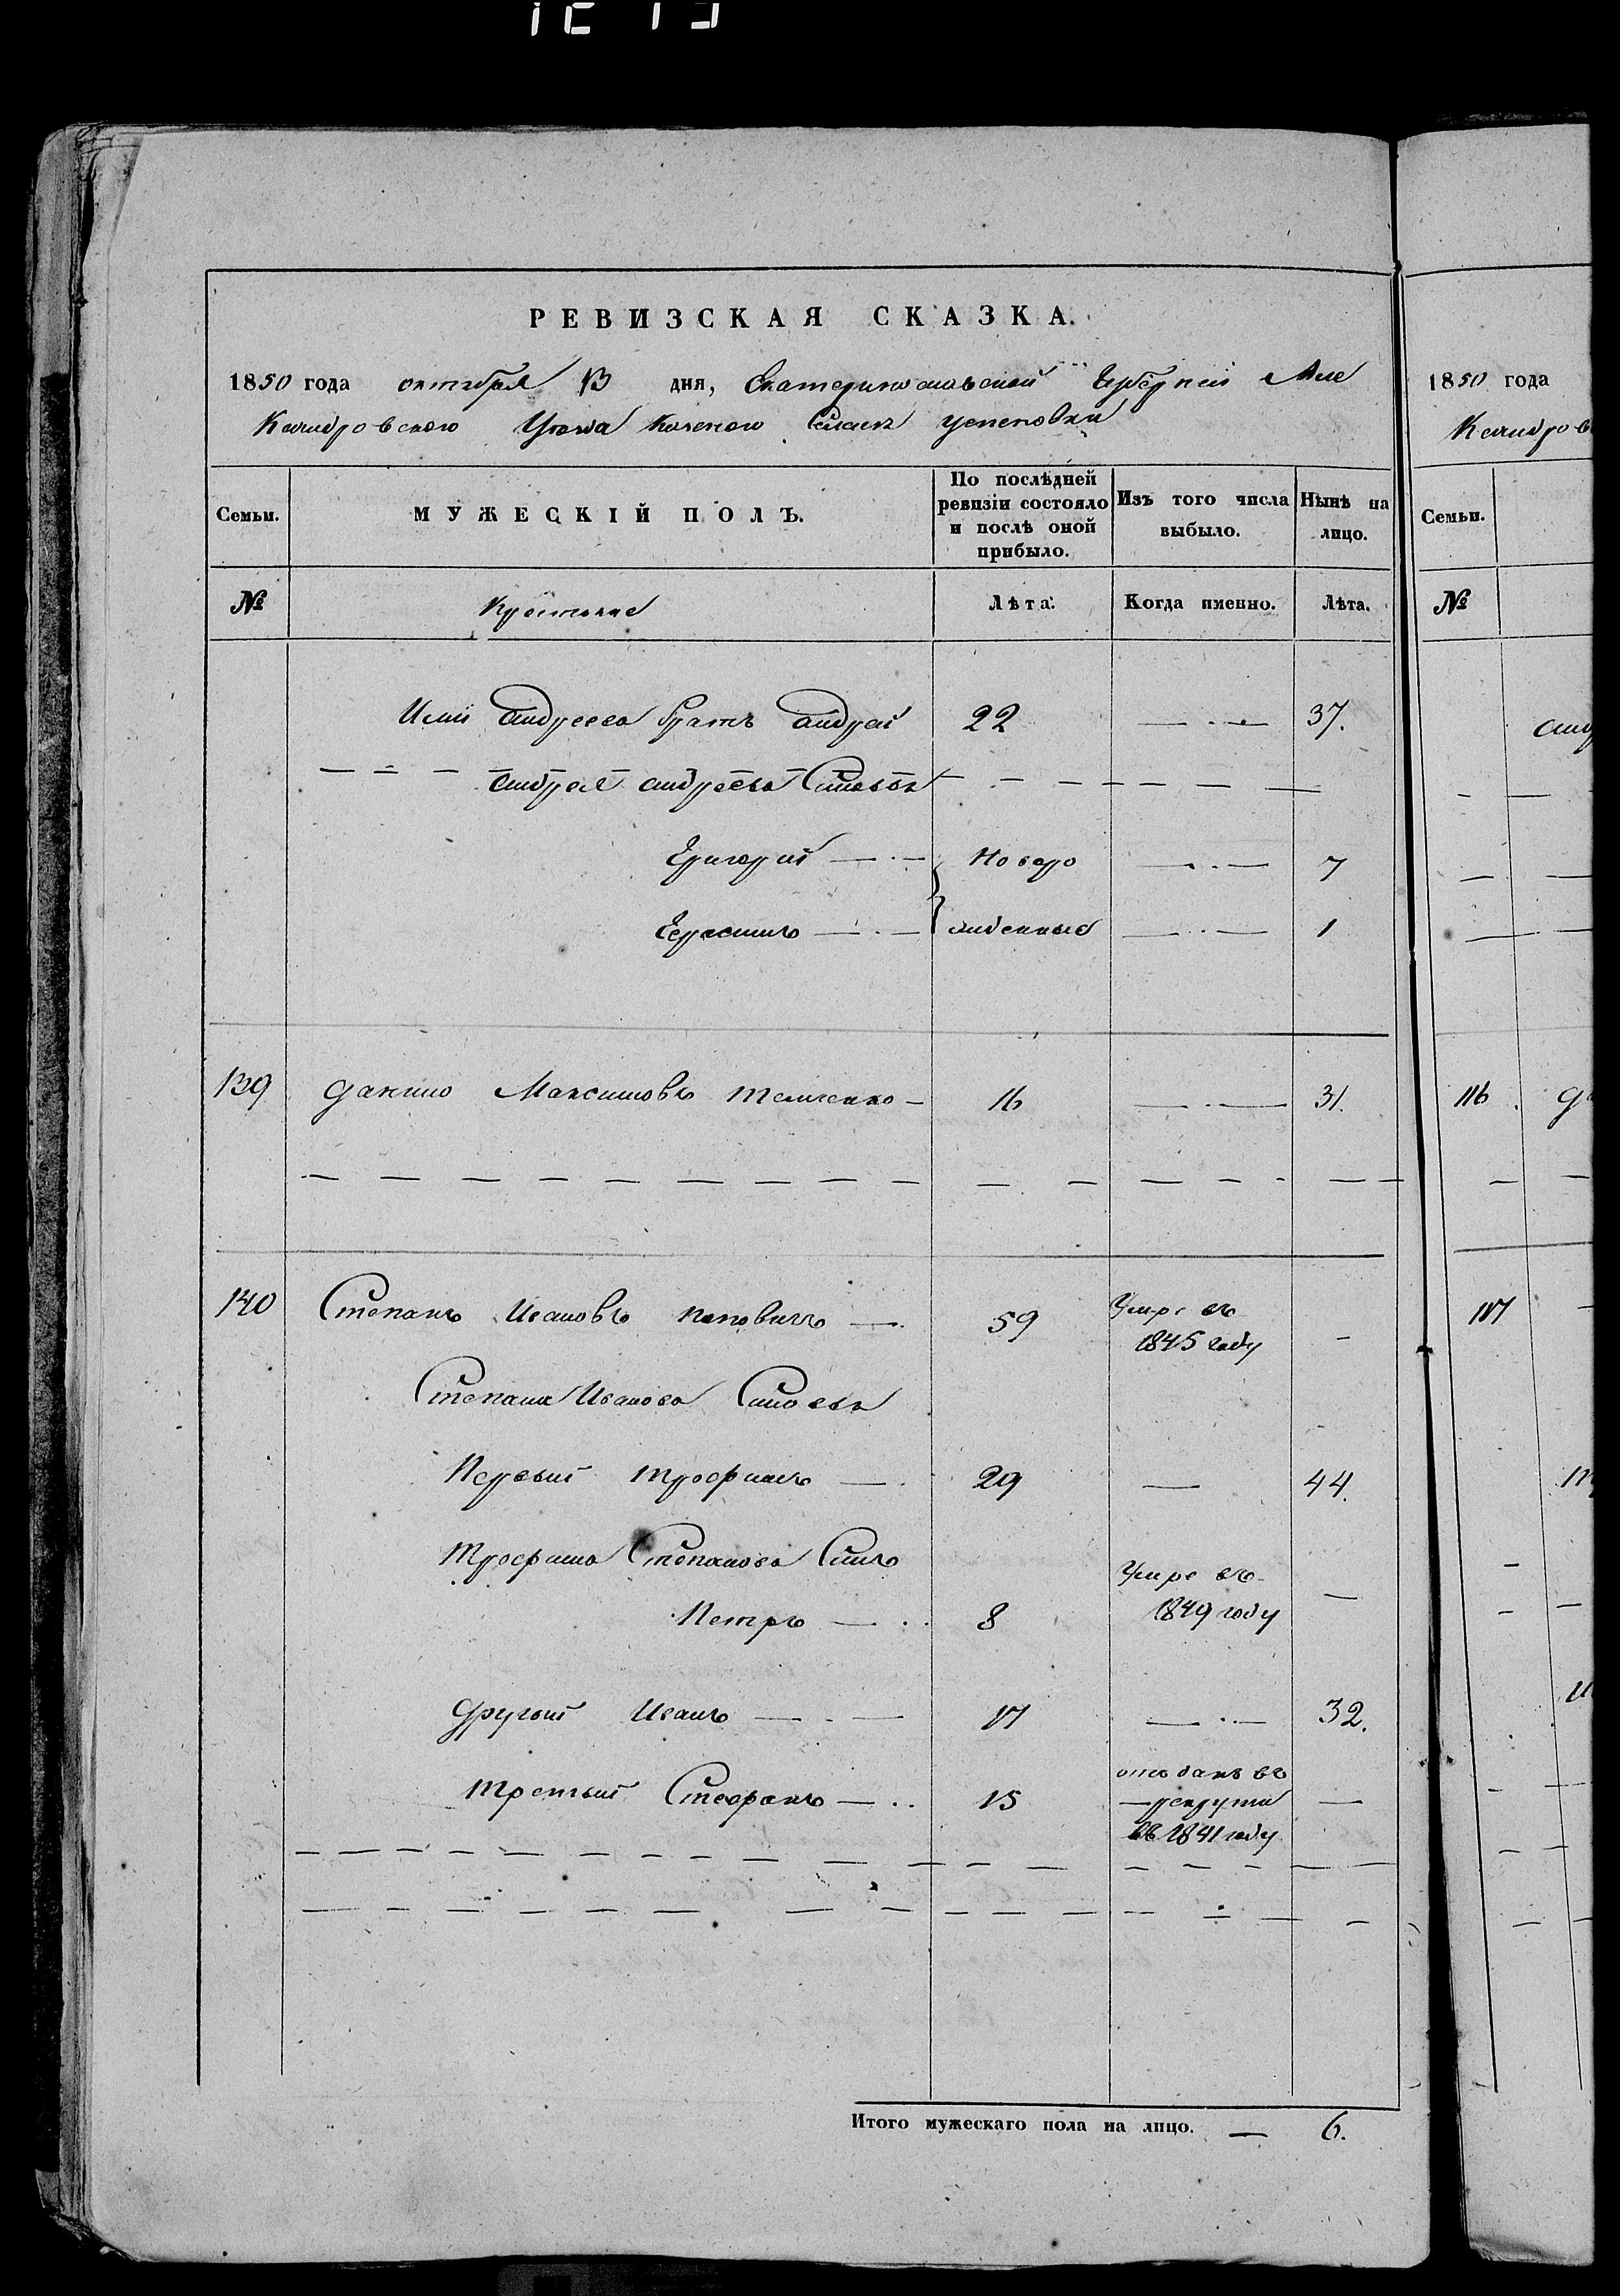 РЕВИЗСКАЯ СКАЗКА.
1850 года октября 13 дня, Екатеринославской Губернии Але
Ксандровского Уезда Казеного Селенія Успеновки
Семьи. МУЖЕСКІЙ ПОЛЪ. По послѣдней ревизіи состояло и послѣ оной прибыло. Изъ того числа выбыло. Нынѣ на лицо.
№ Крестьяне Лѣта. Когда именно. Лѣта.
Андреева братъ Андрей 22 37.
Андрея Андреева Сыновья
Григорий Новоро 7
Герасимъ жденные 1
139 Данило Максимовъ 16 31.
140 Степанъ Ивановъ Поповичъ 59 Умре въ 1845 году —
Степана Иванова Сыновья
Первый Трофимъ 29 — 44.
Трофима Степанова Сынъ
Петръ 8 Умре въ 1849 году —
Другий Иванъ 17 32.
Третий Стефанъ 15 отъданъ въ рекруты въ 1841 году —
Итого мужескаго пола на лицо. — 6.
1850 года
Ксандров
Семьи.
№
Анд
116 Да
117